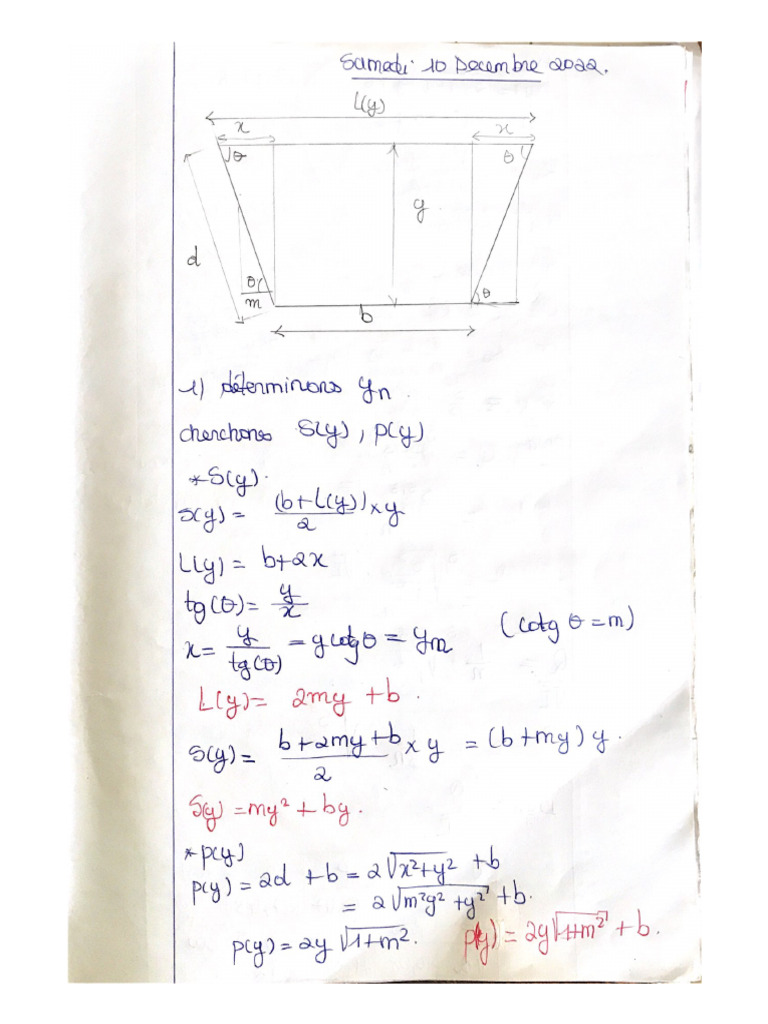 Samedi 10 Decembre 2022.
L(y)
x x
θ θ
y
d
θ θ
m
b
1) déterminons yn.
cherchons S(y), p(y)
*S(y).
S(y) = (b+L(y))/2 × y
L(y) = b+2x
tg(θ) = y/x
x = y/tg(θ) = y cotg θ = ym (cotg θ = m)
L(y) = 2my + b.
S(y) = (b+2my+b)/2 × y = (b+my) y.
S(y) = my² + by.
* p(y)
p(y) = 2d + b = 2√(x²+y²) + b
= 2√(m²y²+y²) + b.
p(y) = 2y √(1+m²). p(y) = 2y√(1+m²) + b.